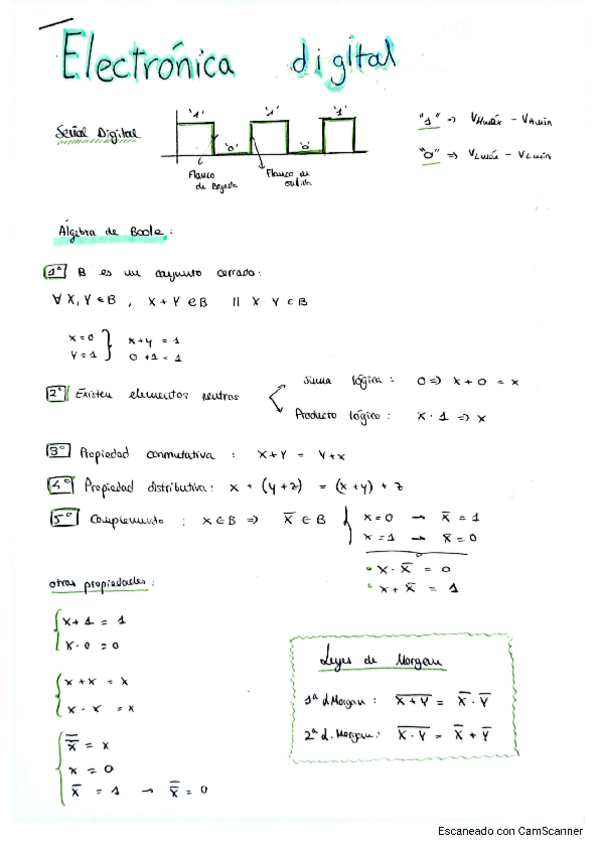 Electrónica digital
'1' '1' '1'
Señal Digital '0' '0'
"1" => VHmáx - VHmín
"0" => VLmáx - VLmín
Flanco de Bajada
Flanco de subida
Álgebra de Boole:
1º B es un conjunto cerrado:
∀ X, Y ∈ B , X + Y ∈ B || X · Y ∈ B
x = 0 } x + y = 1
Y = 1 } 0 + 1 = 1
2º Existen elementos neutros
Suma lógica : 0 => x + 0 = x
Producto lógico : x · 1 => x
3º Propiedad conmutativa : x + Y = Y + x
4º Propiedad distributiva : x + (y + z) = (x + y) + z
5º Complemento : x ∈ B => X̅ ∈ B { x = 0 → x̅ = 1
x = 1 → x̅ = 0
• x · x̅ = 0
• x + x̅ = 1
otras propiedades :
x + 1 = 1
x · 0 = 0
x + x = x
x · x = x
x̅̅ = x
x = 0
x̅ = 1 → x̅̅ = 0
Leyes de Morgan
1ª d Morgan : X̅ ̅+̅ ̅Y̅ = X̅ · Y̅
2ª d. Morgan : X̅ ̅·̅ ̅Y̅ = X̅ + Y̅
Escaneado con CamScanner